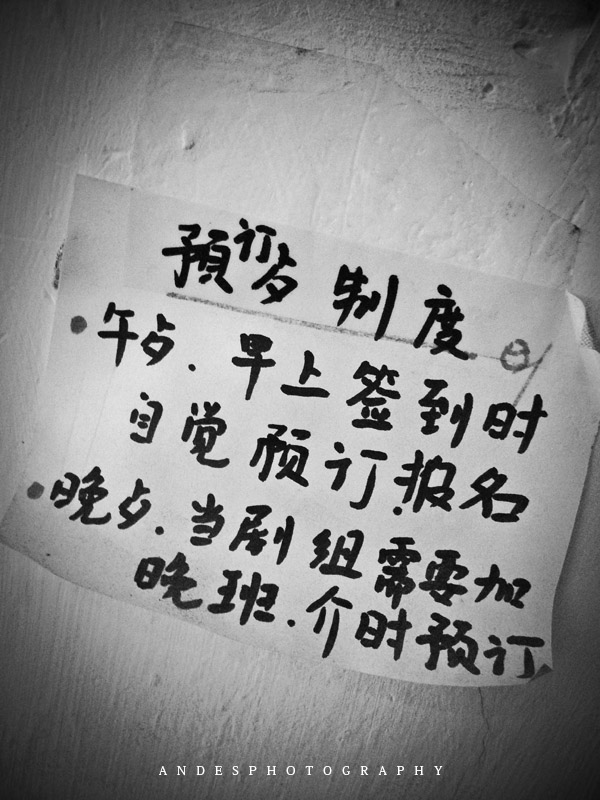 預订歺制度
午歺. 早上签到时
自觉预订.报名
晚歺. 当剧组需要加
晚班. 介时预订.
ANDESPHOTOGRAPHY